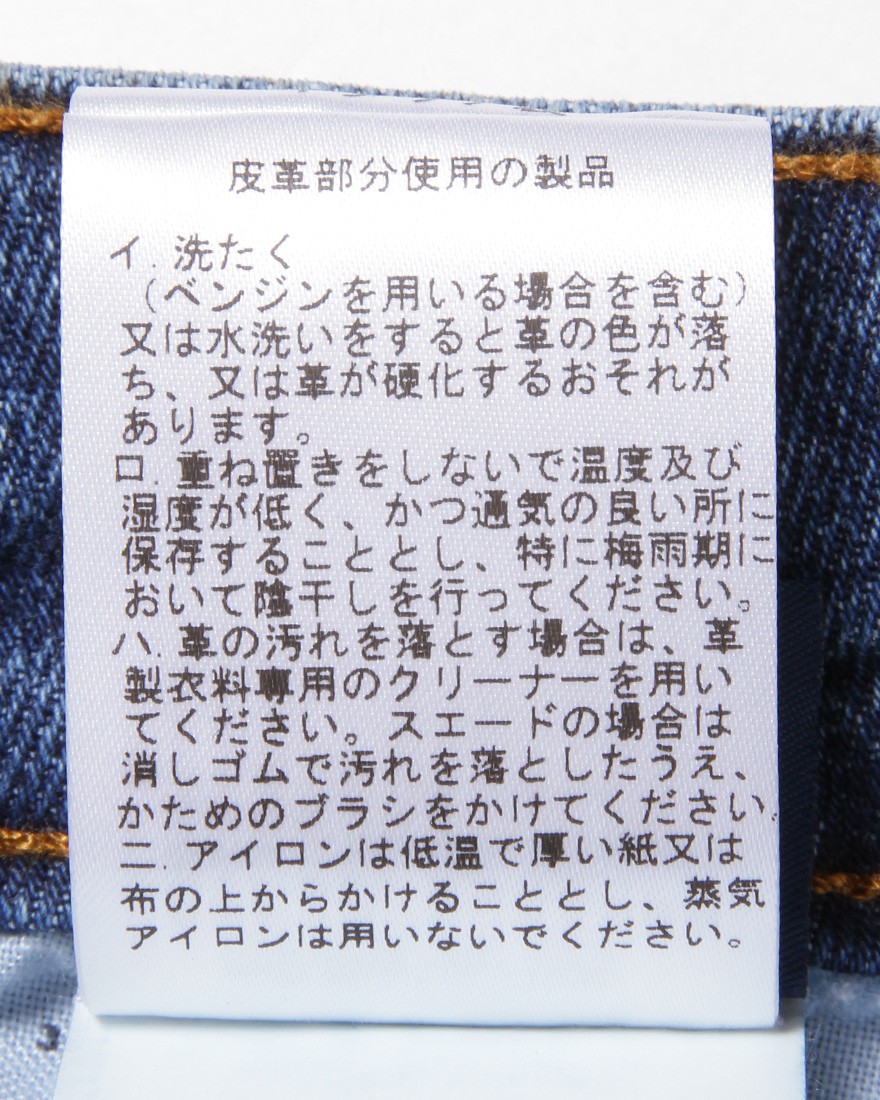 皮革部分使用の製品
イ.洗たく
（ベンジンを用いる場合を含む）
又は水洗いをすると革の色が落
ち、又は革が硬化するおそれが
あります。
ロ.重ね置きをしないで温度及び
湿度が低く、かつ通気の良い所に
保存することとし、特に梅雨期に
おいて陰干しを行ってください。
ハ.革の汚れを落とす場合は、革
製衣料専用のクリーナーを用い
てください。スエードの場合は
消しゴムで汚れを落としたうえ、
かためのブラシをかけてください.
ニ.アイロンは低温で厚い紙又は
布の上からかけることとし、蒸気
アイロンは用いないでください。